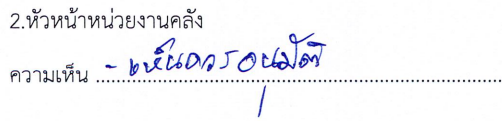 2.หัวหน้าหน่วยงานคลัง
ความเห็น - เห็นควรอนุมัติ